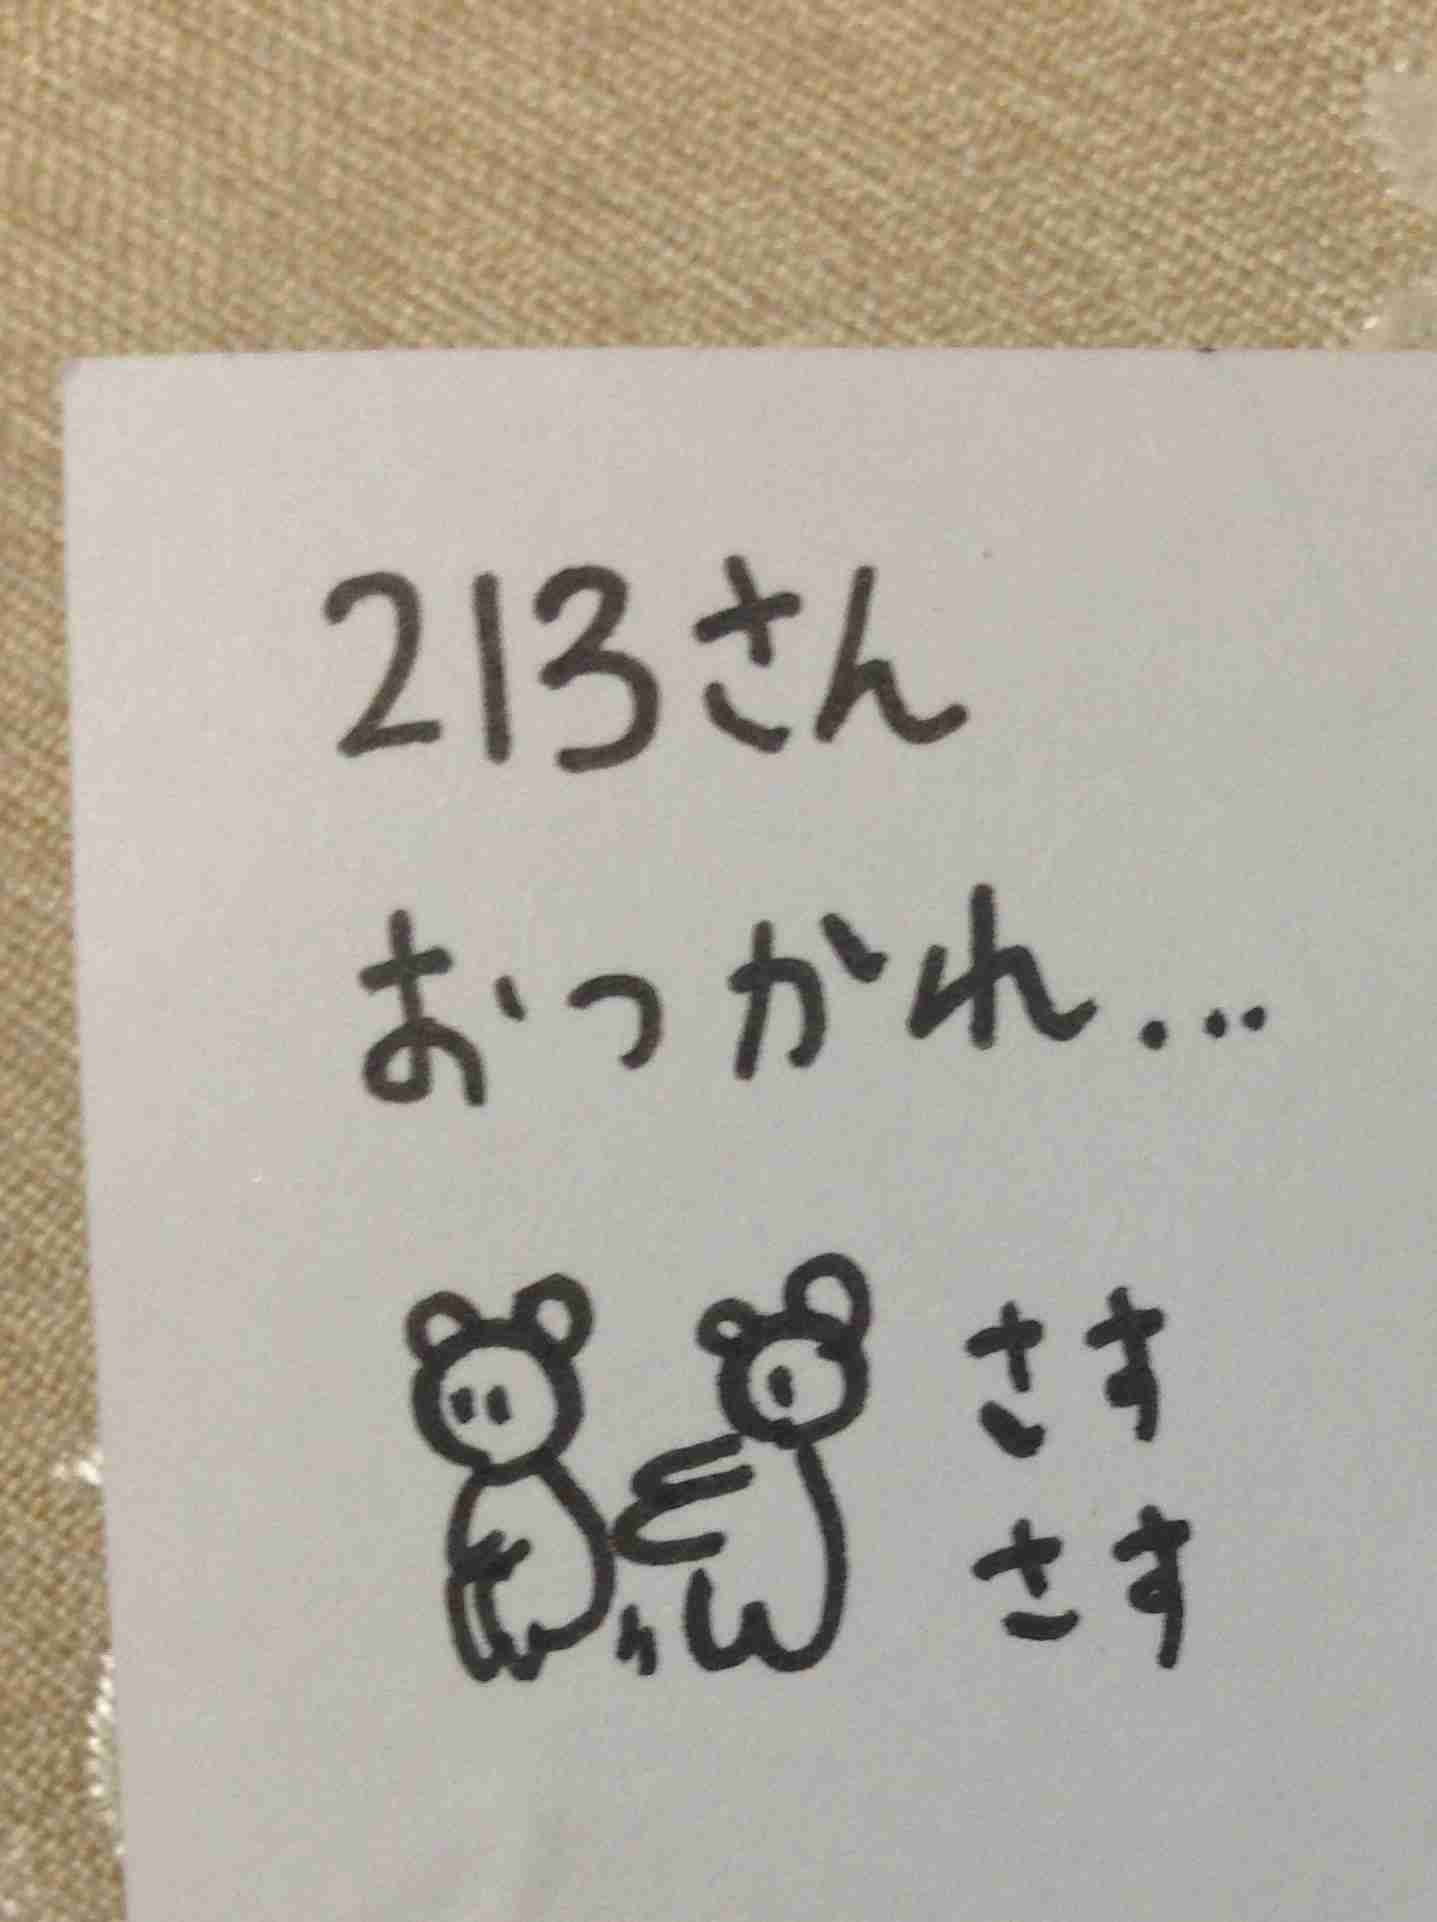 213さん
おつかれ...
さす
さす